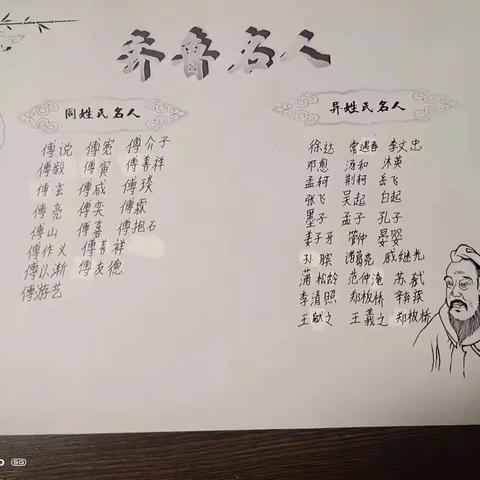 齐鲁名人
同姓氏名人
傅说 傅宽 傅介子
傅毅 傅寅 傅善祥
傅玄 傅咸 傅琰
傅亮 傅奕 傅霖
傅山 傅喜 傅抱石
傅作义 傅善祥
傅以渐 傅友德
傅游艺
异姓氏名人
徐达 常遇春 李文忠
邓愈 汤和 沐英
孟轲 荆轲 岳飞
张飞 吴起 白起
墨子 孟子 孔子
姜子牙 管仲 晏婴
孙膑 诸葛亮 戚继光
蒲松龄 范仲淹 苏轼
李清照 郑板桥 辛弃疾
王献之 王羲之 郑板桥
SG